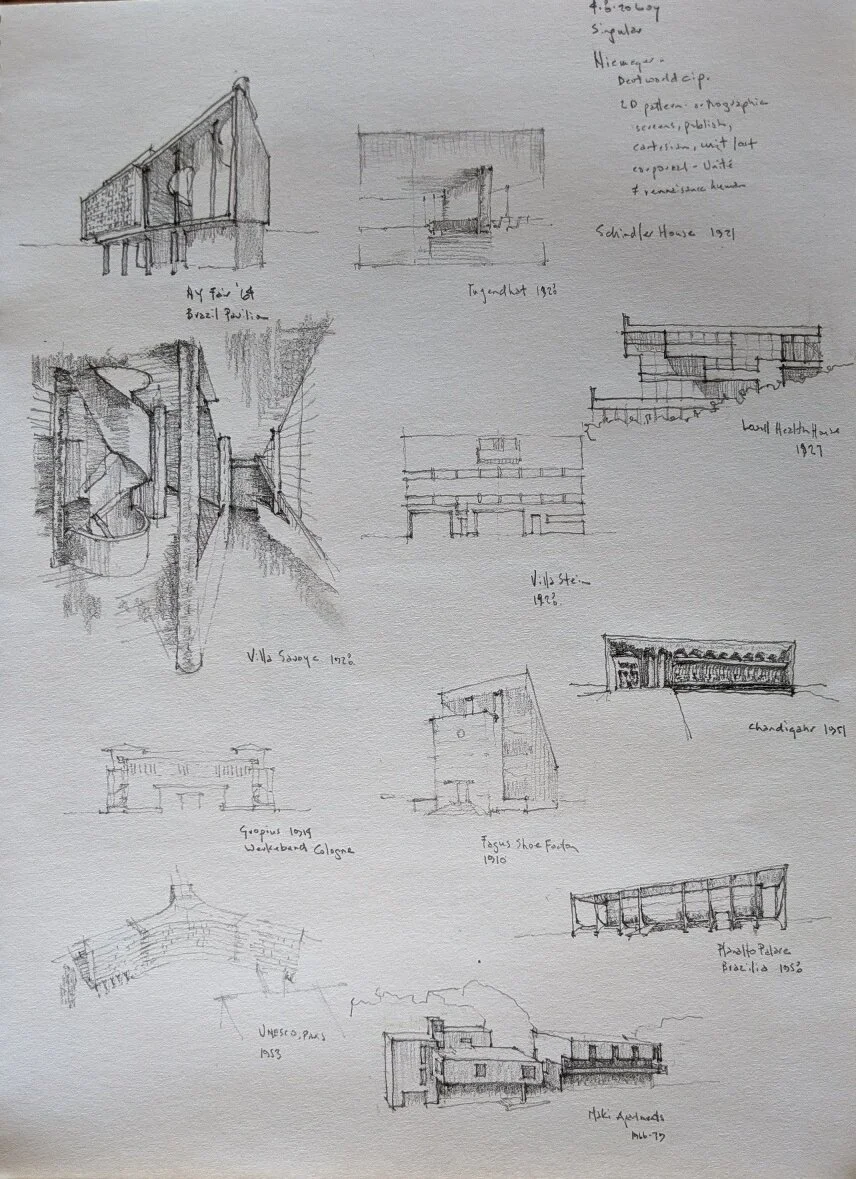 Singular
Niemeyer -
2D pattern - orthographic
screens, publish,
cartesian, unit lost
corporeal - Unité
≠ rennaisance human
Schindler House 1921
NY Fair '64
Brazil Pavilion
Tugendhat 192
Lovell Health House
1927
Villa Stein
192
Villa Savoye 192
Chandigahr 1951
Gropius 1914
Werkebund Cologne
Fagus Shoe Factory
1910
Planalto Palace
Brazilia 195
UNESCO, Paris
1953
Maki Apartments
1966-79